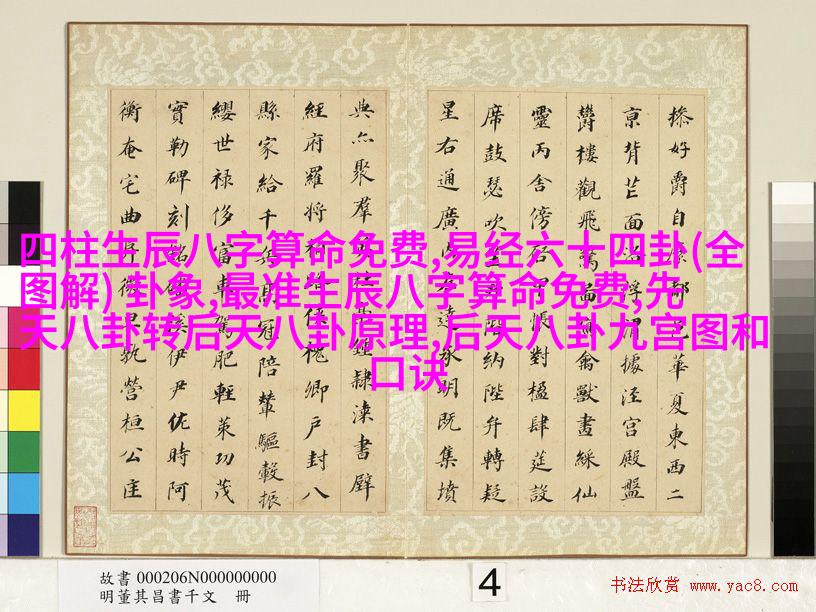 四柱生辰八字算命免费,易经六十四卦(全
图解) 卦象,最准生辰八字算命免费,先
天八卦转后天八卦原理,后天八卦九宫图和
口诀
操好爵自縻都邑華夏東西二
京背芒面洛浮渭據涇宮殿盤
鬱樓觀飛驚圖寫禽獸畫綵仙
靈丙舍傍啓甲帳對楹肆筵設
席鼓瑟吹笙升階納陛弁轉疑
星右通廣內左達承明既集墳
典亦聚羣英杜稾鍾隸漆書壁
經府羅將相路俠槐卿戶封八
縣家給千兵高冠陪輦驅轂振
纓世祿侈富車駕肥輕策功茂
實勒碑刻銘磻溪伊尹佐時阿
衡奄宅曲阜微旦孰營桓公匡
故書 000206N000000000
明董其昌書千文 冊
4
书法欣赏 www.yac8.com